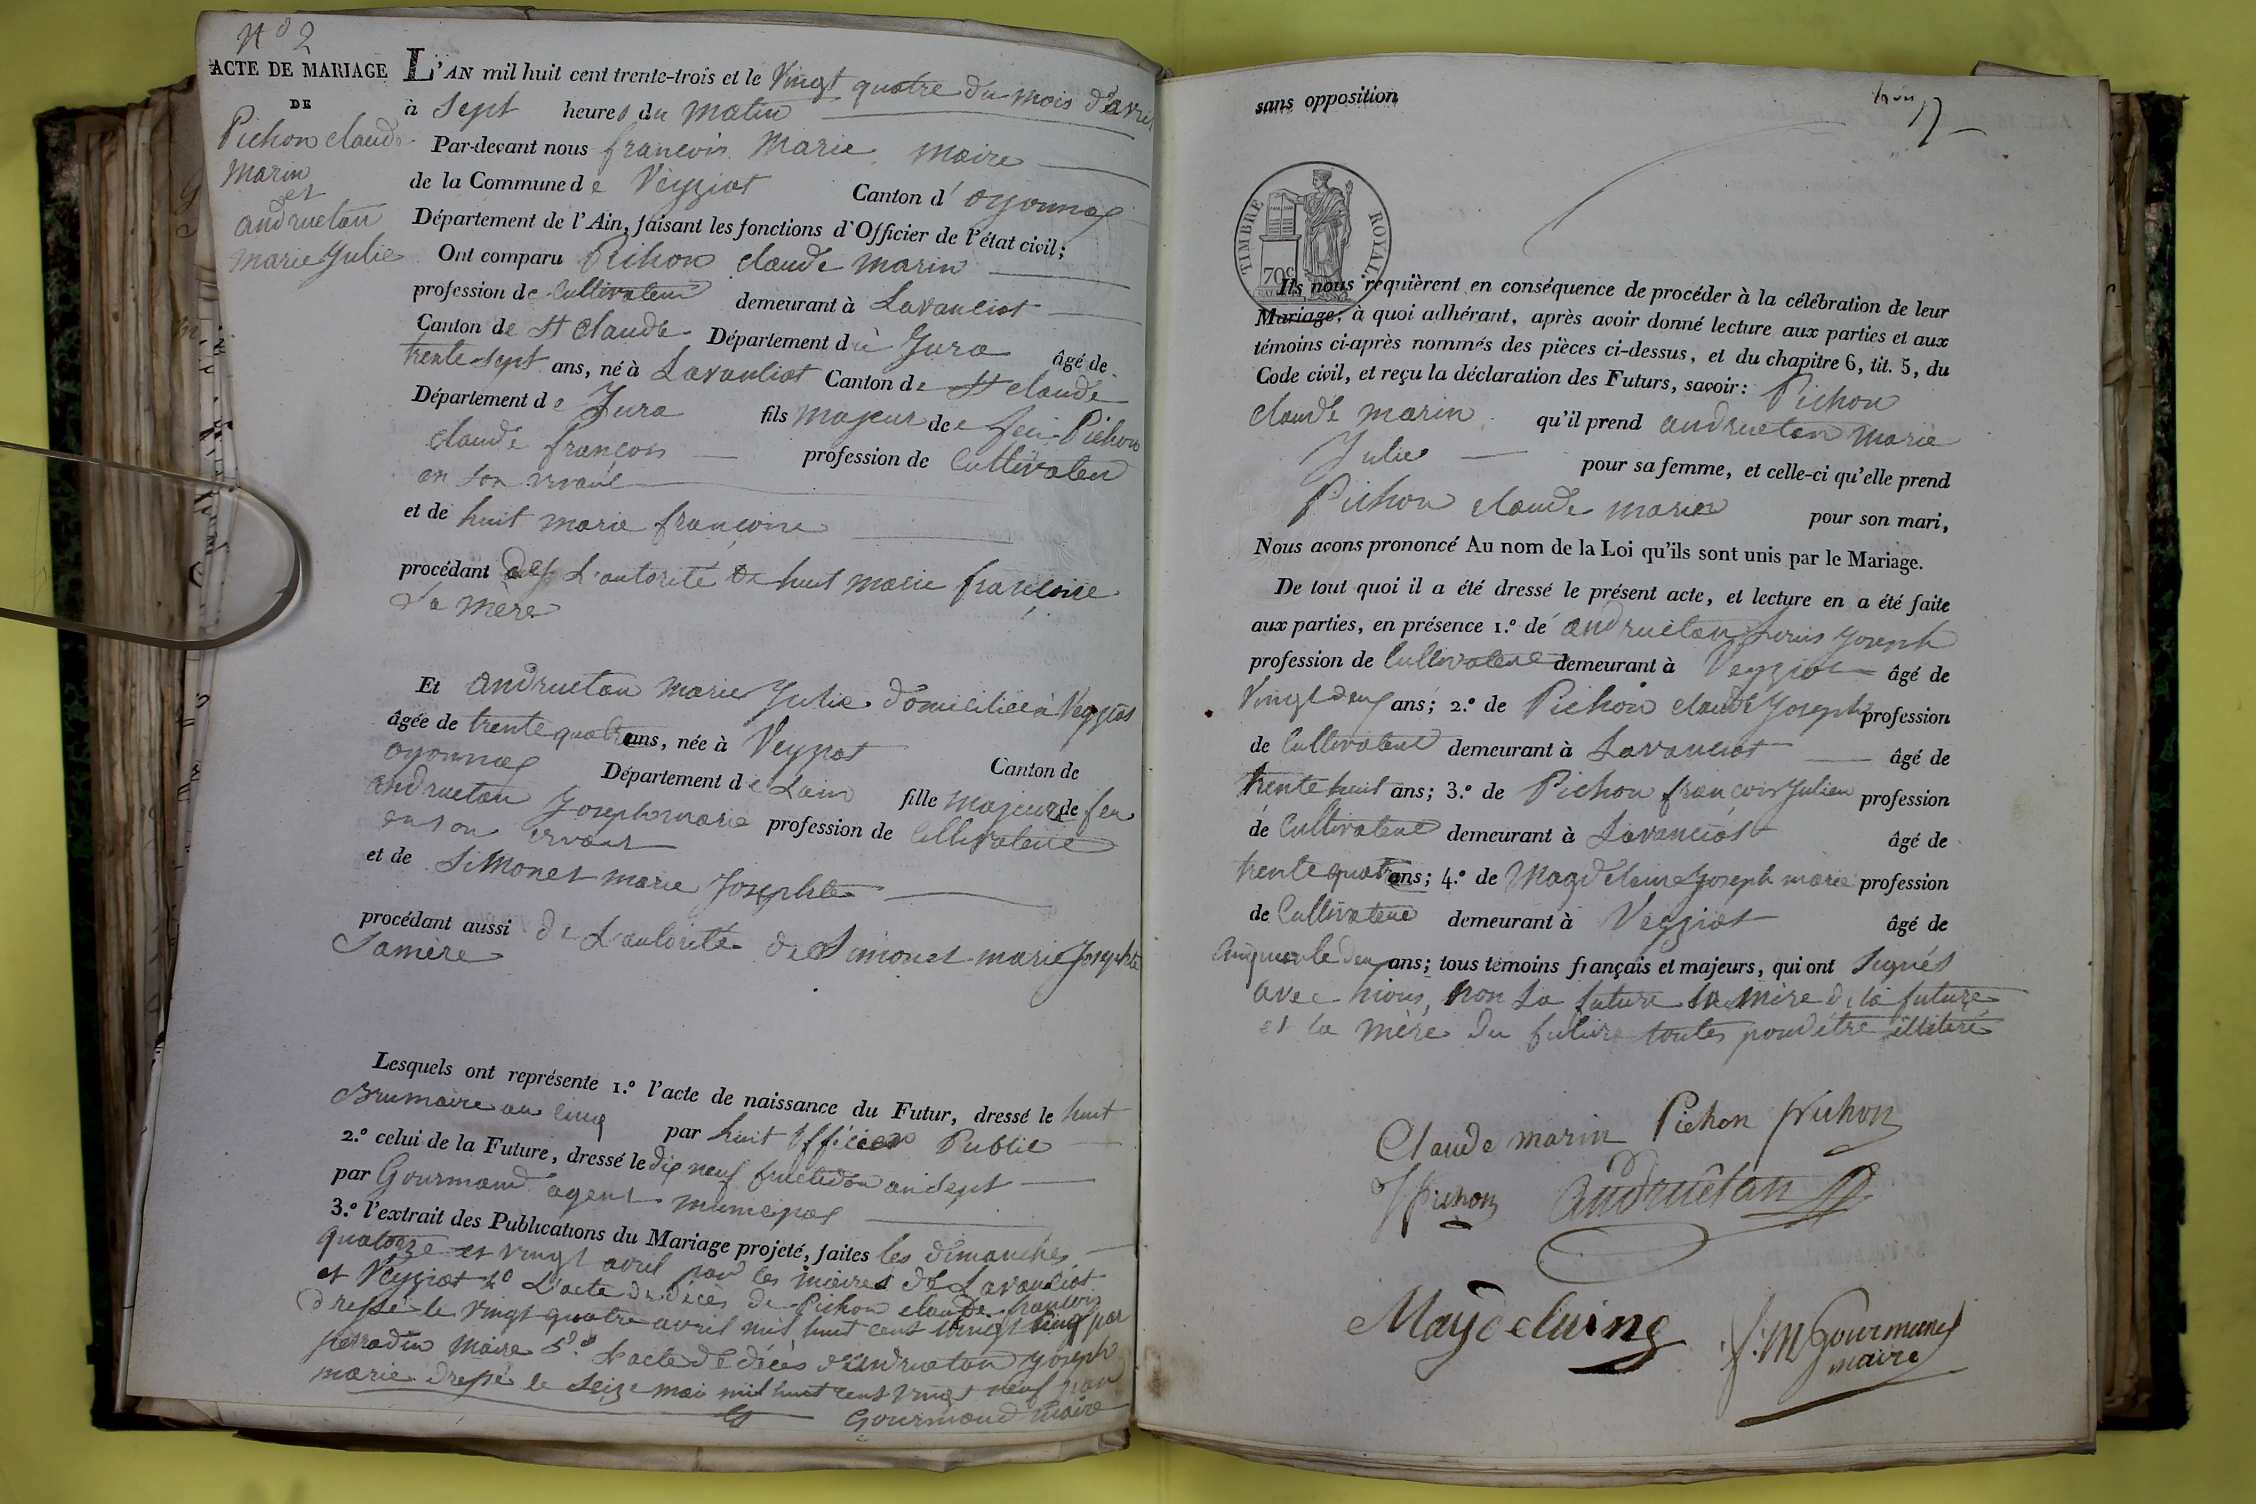 N° 2
ACTE DE MARIAGE
DE
Pichon claude
marin
et
andruetan
marie Julie
L'AN mil huit cent trente-trois et le Vingt quatre du mois d'avril
à sept heures du matin
Par-devant nous françois Marie maire
de la Commune de Veyziat Canton d'oyonnax
Département de l'Ain, faisant les fonctions d'Officier de l'état civil;
Ont comparu Pichon claude marin
profession de Cultivateur demeurant à Lavanciat
Canton de St Claude Département du Jura âgé de
trente sept ans, né à Lavanciat Canton de St claude
Département de Jura fils majeur de feu Pichon
claude françois profession de Cultivateur
en son vivant
et de huit marie françoise
procédant de L'autorité de huit marie françoise
Sa mère
Et andruetan marie Julie domiciliée à Veyziat
âgée de trente quatre ans, née à Veyziat Canton de
oyonnax Département de Lain fille majeure de feu
andruetan Joseph marie profession de Cultivateur
en son vivant
et de Simonet marie Josephte
procédant aussi de L'autorité de Simonet marie Josephte
Sa mère
Lesquels ont représente 1.° l'acte de naissance du Futur, dressé le huit
Brumaire an cinq par huit officier Public
2.° celui de la Future, dressé le dix neuf fructidor an sept
par Gourmand agent municipal
3.° l'extrait des Publications du Mariage projeté, faites les dimanches
quatorze et vingt avril par les maires de Lavanciat
et Veyziat 4° L'acte de décès de Pichon claude françois
dressé le vingt quatre avril mil huit cent vingt cinq par
perradin maire 5° L'acte de décès d'andruetan Joseph
marie dressé le seize mai mil huit cent vingt neuf par
Gourmand maire
sans opposition
TIMBRE ROYAL
70c
Ils nous requièrent en conséquence de procéder à la célébration de leur
Mariage; à quoi adhérant, après avoir donné lecture aux parties et aux
témoins ci-après nommés des pièces ci-dessus, et du chapitre 6, tit. 5, du
Code civil, et reçu la déclaration des Futurs, savoir: Pichon
claude marin qu'il prend andruetan marie
Julie pour sa femme, et celle-ci qu'elle prend
Pichon claude marin pour son mari,
Nous avons prononcé Au nom de la Loi qu'ils sont unis par le Mariage.
De tout quoi il a été dressé le présent acte, et lecture en a été faite
aux parties, en présence 1.° de andruetan Joseph
profession de Cultivateur demeurant à Veyziat âgé de
Vingt deux ans; 2.° de Pichon claude Joseph profession
de Cultivateur demeurant à Lavanciat âgé de
trente huit ans; 3.° de Pichon françois Julien profession
de Cultivateur demeurant à Lavanciat âgé de
trente quatre ans; 4.° de Magdelaine Joseph marie profession
de Cultivateur demeurant à Veyziat âgé de
Cinquante deux ans; tous témoins français et majeurs, qui ont signés
avec nous, non La future La mère de la future
et la mère du futur toutes pour être illitéré
Claude marin Pichon Pichon
Pichon andruetan
Maydelaine J: M Gourmand
maire